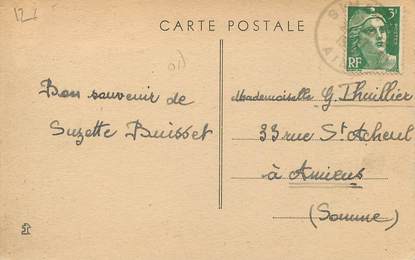 CARTE POSTALE
3F
RF
Bon souvenir de
Suzette Buisset
Mademoiselle G. Thuillier
33 rue St Acheul
à Amiens
(Somme)